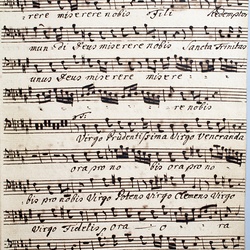 rere miserere nobis Fili Redemptor
mundi Deus miserere nobis Sancta Trinitas
unus Deus miserere misere
re nobis
Virgo Prudentissima Virgo Veneranda
ora pro nobis ora pro no
bis pro nobis Virgo Potens Virgo Clemens Virgo
Virgo Fidelis ora o ra